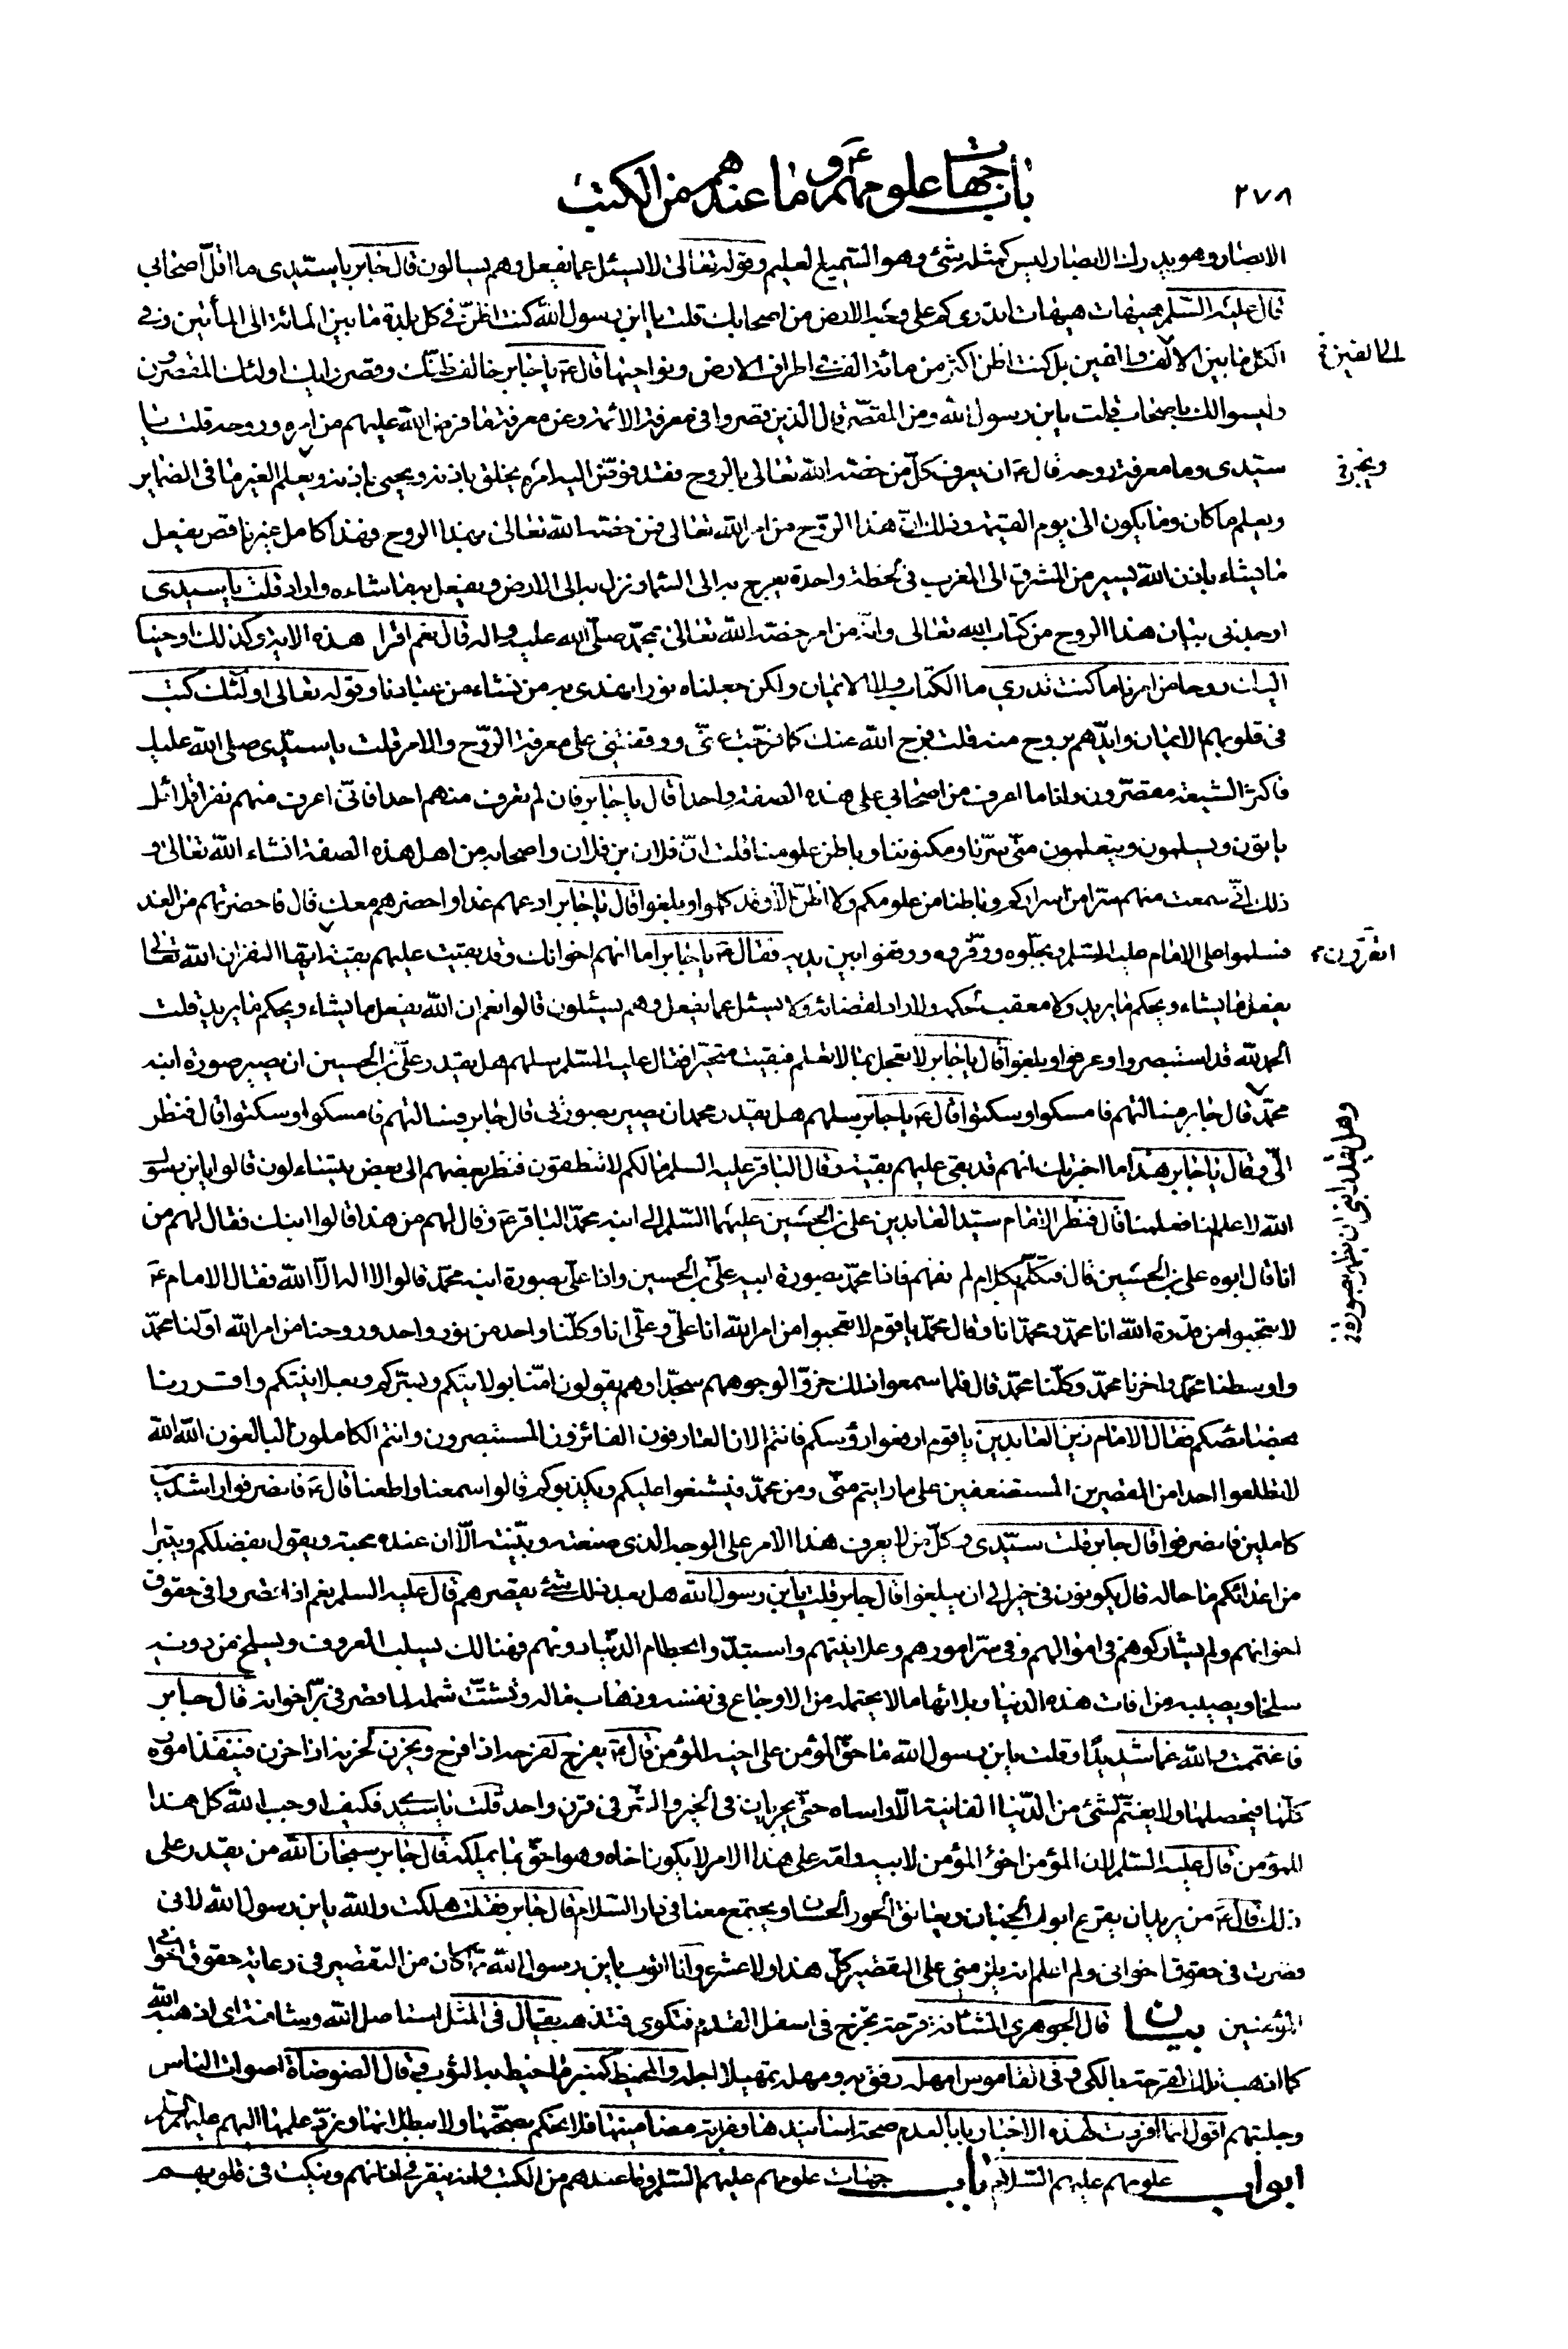 ٢٧٨
باب جهات علومهم ع وما عندهم من الكتب
الابصار وهو يدرك الابصار ليس كمثله شئ وهو السميع العليم وقوله تعالى لا يسئل عما يفعل وهم يسالون قال جابر يا سيدى ما اقل اصحابي
قال عليه السلم هيهات هيهات اتدرى كم على وجه الارض من اصحابك قلت يا ابن رسول الله كنت اظن في كل بلدة ما بين المائة الى المأتين وفي
الكل ما بين الالف والفين بل كنت اظن اكثر من مائة الف في اطراف الارض ونواحيها قال ع يا جابر خالف ظنك وقصر رايك اولئك المقصرون
الى الفين
وليسوا لك باصحاب قلت يا بن رسول الله ومن المقصر قال الذين قصروا في معرفة الائمة وعن معرفة ما فرض الله عليهم من امره وروحه قلت يا
سيدى وما معرفة روحه قال ع ان يعرف كل من خصه الله تعالى بالروح فقد فوض اليه امره يخلق باذنه ويحيى باذنه ويعلم الغير ما في الضماير
ويخبر
ويعلم ما كان وما يكون الى يوم القيمة وذلك ان هذا الروح من امر الله تعالى فمن خصه الله تعالى بهذا الروح فهذا كامل غير ناقص يفعل
ما يشاء باذن الله يسير من المشرق الى المغرب في لحظة واحدة يعرج به الى السماء ونزل به الى الارض ويفعل به ما شاءه واراد قلت يا سيدى
اوجدنى بيان هذا الروح من كتاب الله تعالى وانه من امر خصه الله تعالى بمحمد صلى الله عليه واله قال نعم اقرا هذه الاية وكذلك اوحينا
اليك روحا من امرنا ما كنت تدرى ما الكتاب ولا الايمان ولكن جعلناه نورا نهدى به من نشاء من عبادنا وقوله تعالى اولئك كتب
في قلوبهم الايمان وايدهم بروح منه قلت فرج الله عنك كما فرجت عنى ووقفتنى على معرفة الروح والامر قلت يا سيدى صلى الله عليك
فاكثر الشيعة مقصرون وانا ما اعرف من اصحابي على هذه الصفة واحدا قال يا جابر فان لم تعرف منهم احدا فانى اعرف منهم نفرا قلائل
ياتون ويسلمون ويتعلمون منى سرنا ومكنوننا وباطن علومنا قلت ان فلان بن فلان واصحابه من اهل هذه الصفة انشاء الله تعالى و
ذلك انى سمعت منهم سرا من اسراركم وباطنا من علومكم ولا اظن الا وقد كملوا وبلغوا قال يا جابر ادعهم غدا واحضرهم معك قال فاحضرتهم من الغد
فسلموا على الامام عليه السلم وبجلوه ووقروه ووقفوا بين يديه فقال ع يا جابر اما انهم اخوانك وقد بقيت عليهم بقية ايها النفر ان الله تعالى
اتقرون
يفعل ما يشاء ويحكم ما يريد ولا معقب لحكمه ولا راد لقضائه ولا يسئل عما يفعل وهم يسئلون قالوا نعم ان الله يفعل ما يشاء ويحكم ما يريد قلت
الحمد لله قد استبصروا وعرفوا وبلغوا قال يا جابر لا تعجل بما لا تعلم فبقيت متحيرا فقال عليه السلم سلهم هل يقدر على بن الحسين ان يصير صورة ابنه
محمد قال جابر فسالتهم فامسكوا وسكتوا قال ع يا جابر سلهم هل يقدر محمد ان يصير بصورتى قال جابر فسالتهم فامسكوا وسكتوا قال فنظر
الى وقال يا جابر هذا ما اخبرتك انهم قد بقى عليهم بقية وقال الباقر عليه السلم مالكم لا تنطقون فنظر بعضهم الى بعض يتسائلون قالوا يا بن رسول
الله لا علم لنا فعلمنا قال فنظر الامام سيد العابدين على بن الحسين عليهما السلم الى ابنه محمد الباقر ع وقال لهم من هذا قالوا ابنك فقال لهم من
انا قال ابوه على بن الحسين قال فتكلم بكلام لم نفهم فاذا محمد بصورة ابيه على بن الحسين واذا على بصورة ابنه محمد قالوا لا اله الا الله فقال الامام ع
لا تعجبوا من قدرة الله انا محمد ومحمد انا وقال محمد يا قوم لا تعجبوا من امر الله انا على وعلى انا وكلنا واحد من نور واحد وروحنا من امر الله اولنا محمد
واوسطنا محمد واخرنا محمد وكلنا محمد قال فلما سمعوا ذلك خروا لوجوههم سجدا وهم يقولون امنا بولايتكم وبسركم وبعلانيتكم واقررنا
بخصائصكم فقال الامام زين العابدين يا قوم ارفعوا رؤسكم فانتم الان العارفون الفائزون المستبصرون وانتم الكاملون البالغون الله الله
لا تطلعوا احدا من المقصرين المستضعفين على ما رايتم منى ومن محمد فيشنعوا عليكم ويكذبوكم قالوا سمعنا واطعنا قال ع فانصرفوا راشدين
كاملين فانصرفوا قال جابر قلت سيدى وكل من لا يعرف هذا الامر على الوجه الذى صنعته وبينته الا ان عنده محبة ويقول بفضلكم ويتبرا
من اعدائكم ما حاله قال يكونون في خير الى ان يبلغوا قال جابر قلت يا بن رسول الله هل بعد ذلك شئ يقصرهم قال عليه السلم نعم اذا قصروا في حقوق
اخوانهم ولم يشاركوهم في اموالهم وفي سر امورهم وعلانيتهم واستبدوا بحطام الدنيا دونهم فهنالك يسلب المعروف ويسلخ من دونه
سلخا ويصيبه من افات هذه الدنيا وبلائها ما لا يحتمله من الاوجاع في نفسه وذهاب ماله وتشتت شمله لما قصر في بر اخوانه قال جابر
فاغتممت والله غما شديدا وقلت يا بن رسول الله ما حق المؤمن على اخيه المؤمن قال ع يفرح لفرحه اذا فرح ويحزن لحزنه اذا حزن وينفذ اموره
كلها فيحصلها ولا يغتم لشئ من الدنيا الفانية الا واساه حتى يجريان في الخير والشر في قرن واحد قلت يا سيدى فكيف اوجب الله كل هذا
للمؤمن قال عليه السلم لان المؤمن اخو المؤمن لابيه وامه على هذا الامر لا يكون اخاه وهو احق بما يملكه قال جابر سبحان الله من يقدر على
ذلك قال ع من يريد ان يقرع ابواب الجنان ويعانق الحور الحسان ويجتمع معنا في دار السلام قال جابر فقلت هلكت والله يا بن رسول الله لانى
قصرت في حقوق اخوانى ولم اعلم انه يلزمنى على التقصير كل هذا ولا عشره وانا اتوب يا بن رسول الله مما كان من التقصير في رعاية حقوق اخوانى
وهل يقدر ابنى ان يظهر بصورتى
المؤمنين بيان قال الجوهرى الشافة قرحة تخرج في اسفل القدم فتكوى فتذهب يقال في المثل استاصل الله شافته اى اذهبه الله
كما اذهب تلك القرحة بالكى وفي القاموس امهله رفق به ومهله تمهيلا اجله والمخيط كمنبر ما خيط به الثوب وقال الضوضاة اصوات الناس
وجلبتهم اقول انما افردت لهذه الاخبار بابا لعدم صحة اسانيدها وغرابة مضامينها فلا نحكم بصحتها ولا ببطلانها ونرد علمها اليهم عليهم السلم
ابواب علومهم عليهم السلام باب جهات علومهم عليهم السلم وما عندهم من الكتب وانه ينقر في اذانهم وينكت في قلوبهم